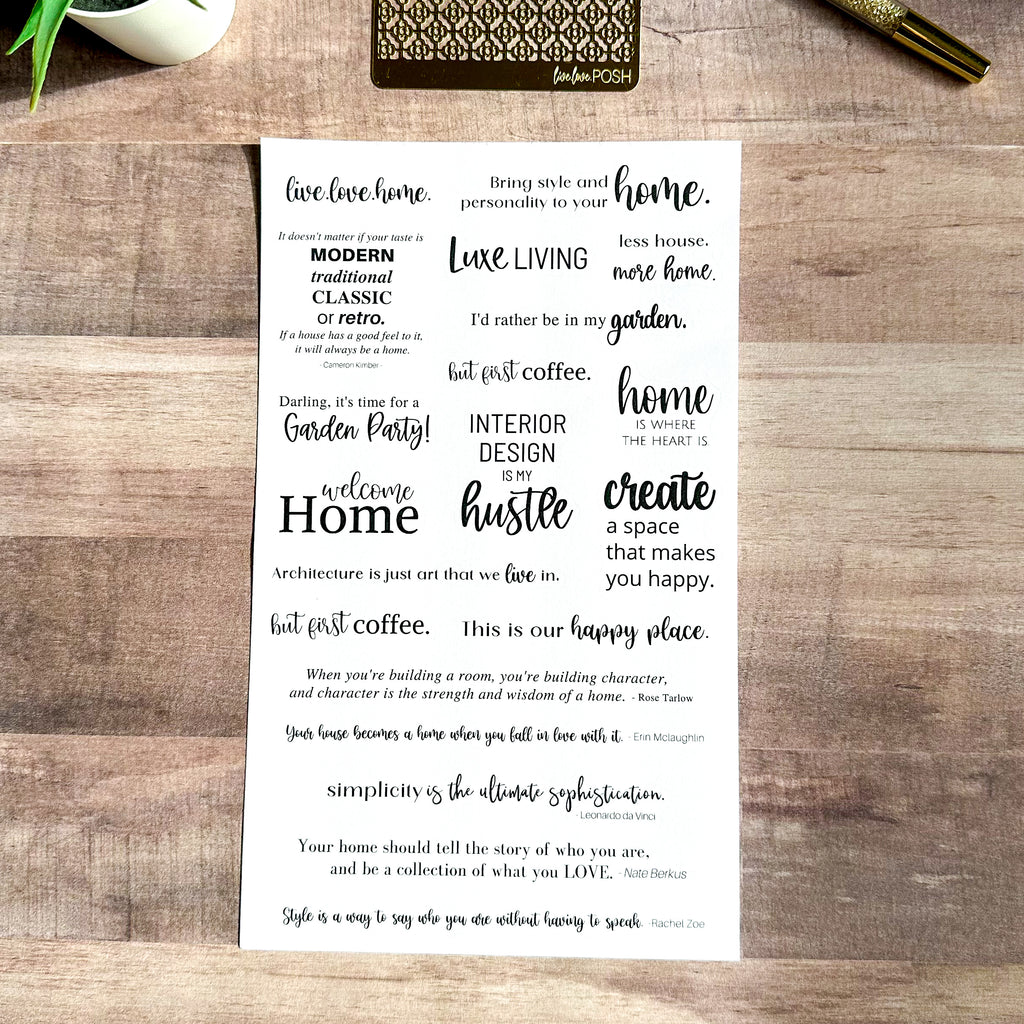 live.love.POSH
live.love.home.
Bring style and
personality to your home.
It doesn't matter if your taste is
MODERN
traditional
CLASSIC
or retro.
If a house has a good feel to it,
it will always be a home.
- Cameron Kimber -
Luxe LIVING
less house.
more home.
I'd rather be in my garden.
but first coffee.
home
IS WHERE
THE HEART IS
Darling, it's time for a
Garden Party!
INTERIOR
DESIGN
IS MY
hustle
welcome
Home
create
a space
that makes
you happy.
Architecture is just art that we live in.
but first coffee.
This is our happy place.
When you're building a room, you're building character,
and character is the strength and wisdom of a home. - Rose Tarlow
Your house becomes a home when you fall in love with it. - Erin Mclaughlin
simplicity is the ultimate sophistication.
- Leonardo da Vinci
Your home should tell the story of who you are,
and be a collection of what you LOVE. - Nate Berkus
Style is a way to say who you are without having to speak. -Rachel Zoe